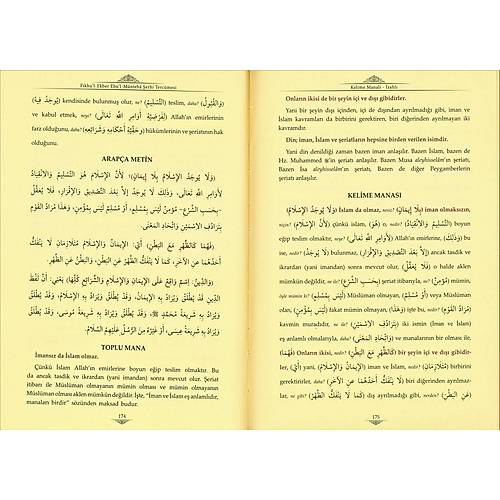 Fıkhu'l Ekber Ebu'l-Münteha Şerhi Tercümesi
(وَالْقَبُولُ) kendisinde bulunmuş olur, ne? (التَّسْلِيمُ) teslim, daha? (يُوجَدُ فِيهِ)
ve kabul etmek, neye? (لِفَرْضِيَّةِ أَوَامِرِ اللَّهِ تَعَالَى) Allah'ın emirlerinin
farz olduğunu, daha? (وَحَقِّيَّةِ أَحْكَامِهِ وَشَرَائِعِهِ) hükümlerinin ve şeriatının hak
olduğunu.
ARAPÇA METİN
(وَلَا يُوجَدُ الْإِسْلَامُ بِلَا إِيمَانٍ)؛ لِأَنَّ الْإِسْلَامَ هُوَ التَّسْلِيمُ وَالِانْقِيَادُ
لِأَوَامِرِ اللَّهِ تَعَالَى. وَذَلِكَ لَا يُوجَدُ إِلَّا بَعْدَ التَّصْدِيقِ وَالْإِقْرَارِ، فَلَا يُعْقَلُ
-بِحَسَبِ الشَّرْعِ- مُؤْمِنٌ لَيْسَ بِمُسْلِمٍ، أَوْ مُسْلِمٌ لَيْسَ بِمُؤْمِنٍ، وَهَذَا مُرَادُ الْقَوْمِ
بِتَرَادُفِ الِاسْمَيْنِ وَاتِّحَادِ الْمَعْنَى.
(فَهُمَا كَالظَّهْرِ مَعَ الْبَطْنِ) أَيِ: الْإِيمَانُ وَالْإِسْلَامُ مُتَلَازِمَانِ لَا يَنْفَكُّ
أَحَدُهُمَا عَنِ الْآخَرِ، كَمَا لَا يَنْفَكُّ الظَّهْرُ عَنِ الْبَطْنِ، وَالْبَطْنُ عَنِ الظَّهْرِ.
(وَالدِّينُ: اِسْمٌ وَاقِعٌ عَلَى الْإِيمَانِ وَالْإِسْلَامِ وَالشَّرَائِعِ كُلِّهَا) يَعْنِي: أَنَّ لَفْظَ
الدِّينِ قَدْ يُطْلَقُ وَيُرَادُ بِهِ الْإِيمَانُ، وَقَدْ يُطْلَقُ وَيُرَادُ بِهِ الْإِسْلَامُ، وَقَدْ يُطْلَقُ
وَيُرَادُ بِهِ شَرِيعَةُ مُحَمَّدٍ ﷺ، وَقَدْ يُطْلَقُ وَيُرَادُ بِهِ شَرِيعَةُ مُوسَى، وَقَدْ يُطْلَقُ
وَيُرَادُ بِهِ شَرِيعَةُ عِيسَى، أَوْ غَيْرِهِ مِنَ الرُّسُلِ عَلَيْهِمُ السَّلَامُ.
TOPLU MANA
İmansız da İslam olmaz.
Çünkü İslam Allah'ın emirlerine boyun eğip teslim olmaktır. Bu
da ancak tasdik ve ikrardan (yani imandan) sonra mevcut olur. Şeriat
itibarı ile Müslüman olmayanın mümin olması ve mümin olmayanın
Müslüman olması aklen mümkün değildir. İşte, "İman ve İslam eş anlamlıdır,
manaları birdir" sözünden maksad budur.
174
Kelime Manalı - İzahlı
Onların ikisi de bir şeyin içi ve dışı gibidirler.
Yani bir şeyin dışı içinden, içi de dışından ayrılmadığı gibi, iman ve
İslam kavramları da birbirini gerektiren, biri diğerinden ayrılmayan iki
kavramdır.
Din; iman, İslam ve şeriatların hepsine birden verilen isimdir.
Yani din denildiği zaman bazen iman anlaşılır. Bazen İslam, bazen de
Hz. Muhammed'in şeriatı anlaşılır. Bazen Musa aleyhisselâm'ın şeriatı,
Bazen İsa aleyhisselâm'ın şeriatı, Bazen de diğer Peygamberlerin
şeriatı anlaşılır.
KELİME MANASI
(وَلَا يُوجَدُ الْإِسْلَامُ) İslam da olmaz, nesiz? (بِلَا إِيمَانٍ) iman olmaksızın,
niçin? (لِأَنَّ الْإِسْلَامَ) çünkü islam, (هُوَ) o, nedir? (التَّسْلِيمُ وَالِانْقِيَادُ) boyun
eğip teslim olmaktır, neye? (لِأَوَامِرِ اللَّهِ تَعَالَى) Allah'ın emirlerine, (وَذَلِكَ) bu
ise, nedir? (لَا يُوجَدُ) (إِلَّا بَعْدَ التَّصْدِيقِ وَالْإِقْرَارِ) ancak tasdik
ve ikrardan (yani imandan) sonra mevcut olur, (فَلَا يُعْقَلُ) o halde aklen
mümkün değildir, ne ile? (بِحَسَبِ الشَّرْعِ) şeriat itibarıyla, ne? (مُؤْمِنٌ) mümin,
(لَيْسَ بِمُسْلِمٍ) Müslüman olmayan, (أَوْ مُسْلِمٌ) veya Müslüman
olan, (لَيْسَ بِمُؤْمِنٍ) fakat mümin olmayan, (وَهَذَا) işte bu, nedir? (مُرَادُ الْقَوْمِ)
kavmin muradıdır, ne ile? (بِتَرَادُفِ الِاسْمَيْنِ) iki ismin (İman ve İslam)
eş anlamlı olması ile, daha? (وَاتِّحَادِ الْمَعْنَى) ve mananın bir olması ile
(فَهُمَا) Onların ikisi, nedir? (كَالظَّهْرِ مَعَ الْبَطْنِ) bir şeyin içi ve dışı gibidir-
ler, (أَيِ) yani, (الْإِيمَانُ وَالْإِسْلَامُ) iman ve İslam, nedir? (مُتَلَازِمَانِ) birbirini
gerektirirler, daha? (لَا يَنْفَكُّ أَحَدُهُمَا عَنِ الْآخَرِ) biri diğerinden ayrılmaz,
nasıl gibi? (كَمَا لَا يَنْفَكُّ الظَّهْرُ) dış ayrılmadığı gibi, neden? (عَنِ الْبَطْنِ)
175